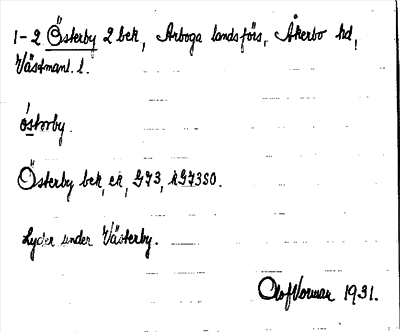 1-2 Österby 2 bek, Arboga landsförs, Åkerbo hd,
Västmanl. l.
österby.
Österby bek, ek, G73, kG73SO.
Lyder under Västerby.
Olof Vorman 1931.